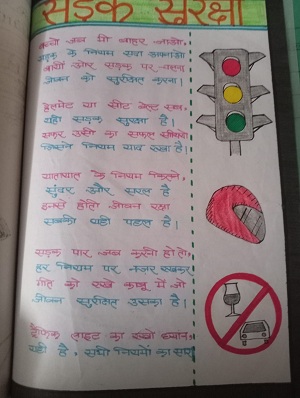 सड़क सुरक्षा
बच्चो जब भी बाहर जाओ,
सड़क के नियम सदा अपनाओ
बायीं ओर सड़क पर चलना
जीवन को सुरक्षित करना।
हेलमेट या सीट बेल्ट सब,
यही सड़क सुरक्षा है।
सफर उसी का सफल
जिसने नियम याद रखा है।
यातायात के नियम कितने,
सुंदर और सरल है
इनसे होती जीवन रक्षा
सबकी यही पहल है।
सड़क पार जब करनी हो तो,
हर नियम पर नजर रखकर
गति को रखे काबू में जो
जीवन सुरक्षित उसका है।
लाइट का रखो ध्यान,
यही है, सभी नियमों का सार